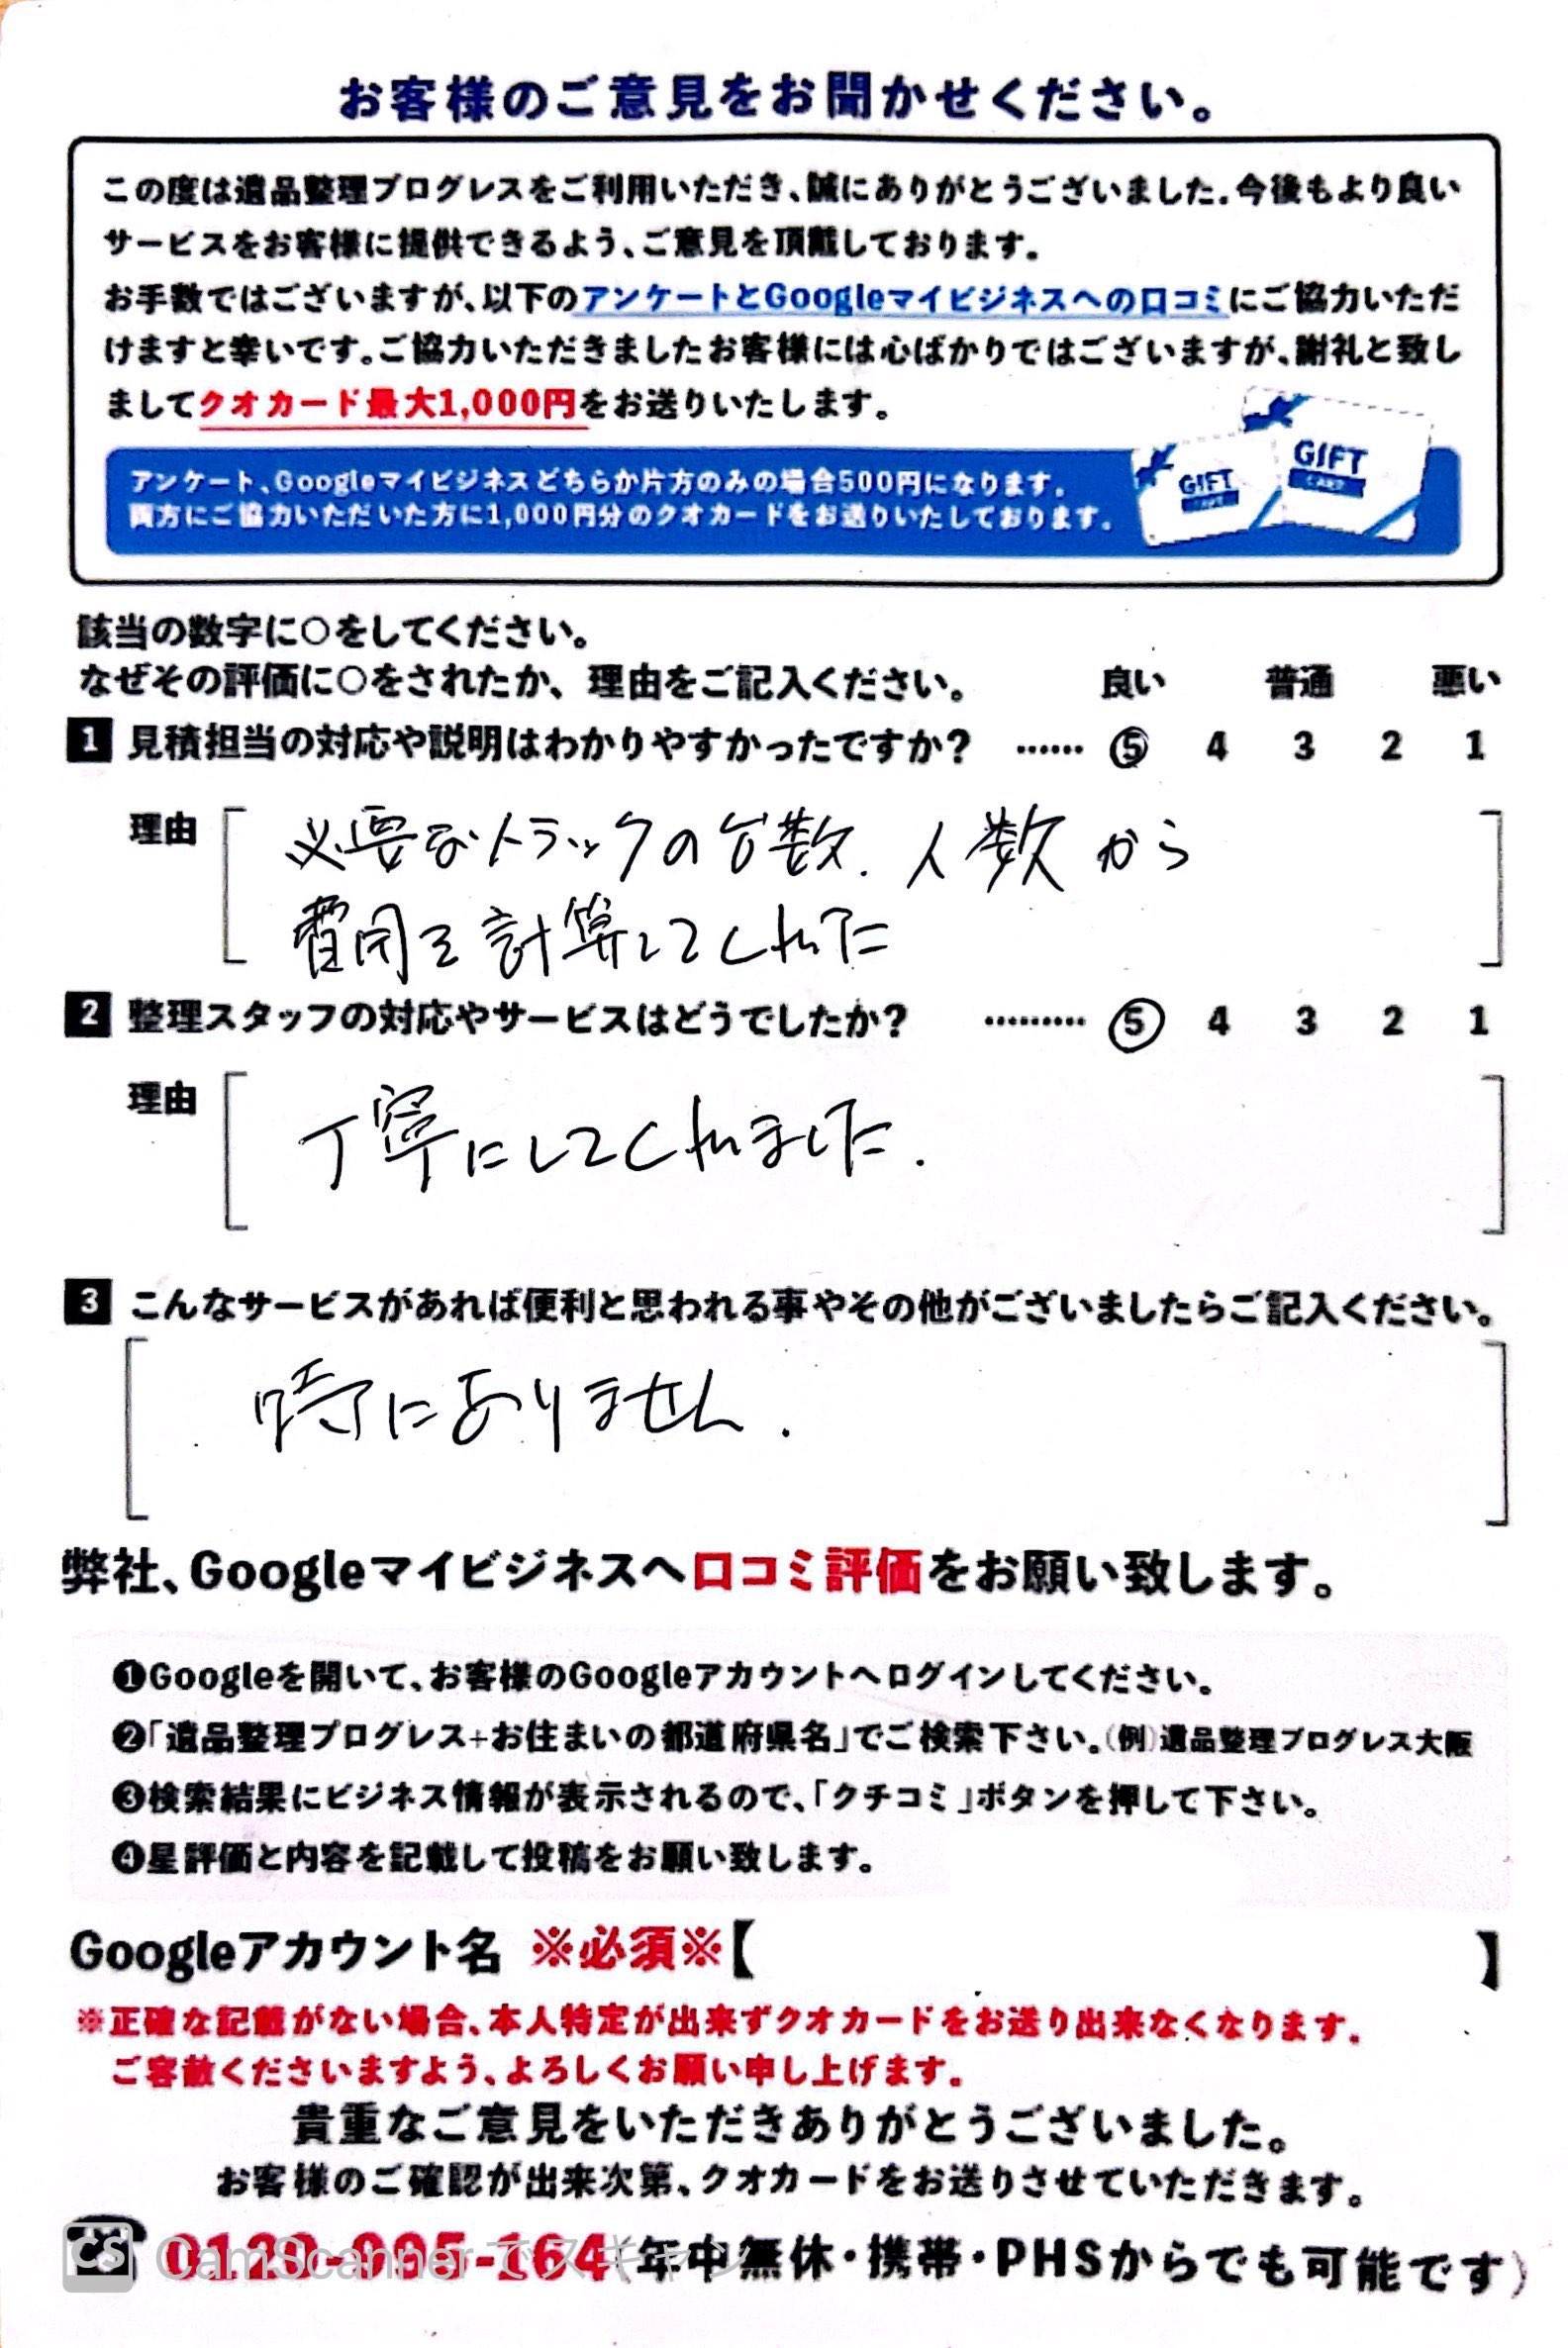 お客様のご意見をお聞かせください。
この度は遺品整理プログレスをご利用いただき、誠にありがとうございました。今後もより良い
サービスをお客様に提供できるよう、ご意見を頂戴しております。
お手数ではございますが、以下のアンケートとGoogleマイビジネスへの口コミにご協力いただ
けますと幸いです。ご協力いただきましたお客様には心ばかりではございますが、謝礼と致し
ましてクオカード最大1,000円をお送りいたします。
アンケート、Googleマイビジネスどちらか片方のみの場合500円になります。
両方にご協力いただいた方に1,000円分のクオカードをお送りいたしております。
GIFT CARD
GIFT CARD
該当の数字に○をしてください。
なぜその評価に○をされたか、理由をご記入ください。 良い 普通 悪い
1 見積担当の対応や説明はわかりやすかったですか? …… ⑤ 4 3 2 1
理由 必要なトラックの台数、人数から
費用を計算してくれた
2 整理スタッフの対応やサービスはどうでしたか? ……… ⑤ 4 3 2 1
理由 丁寧にしてくれました.
3 こんなサービスがあれば便利と思われる事やその他がございましたらご記入ください。
特にありません.
弊社、Googleマイビジネスへ口コミ評価をお願い致します。
❶Googleを開いて、お客様のGoogleアカウントへログインしてください。
❷「遺品整理プログレス+お住まいの都道府県名」でご検索下さい。(例)遺品整理プログレス大阪
❸検索結果にビジネス情報が表示されるので、「クチコミ」ボタンを押して下さい。
❹星評価と内容を記載して投稿をお願い致します。
Googleアカウント名 ※必須※【 】
※正確な記載がない場合、本人特定が出来ずクオカードをお送り出来なくなります。
ご容赦くださいますよう、よろしくお願い申し上げます。
貴重なご意見をいただきありがとうございました。
お客様のご確認が出来次第、クオカードをお送りさせていただきます。
☎ 0120-905-164(年中無休・携帯・PHSからでも可能です)
CS CamScanner でスキャン